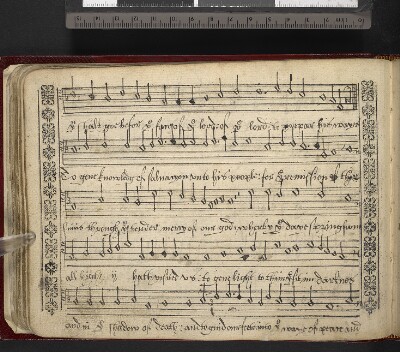 shalt goe before yͤ face of yͤ lord of yͤ lord ij prepare his wayes
To geue knowledg of saluacyon unto his people: for yͤ remission of theyr
sins through yͤ tender mercy of our god wherby yͤ daye spring from
on high ij hath visited us: to geue light to them yͭ sit in darknes
and in yͤ shadow of death: and to guid our feete into yͤ waye of peace and